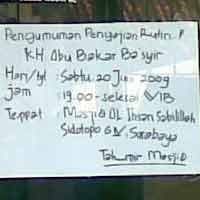 Pengumuman Pengajian Rutin..!
KH Abu Bakar Ba'syir
Hari/tgl : Sabtu. 20 Juni 2009
jam : 19.00 - selesai WIB
Teppat : Masjid AL Ihsan Sabilillah
Sidotopo Surabaya
Takmir Masjid